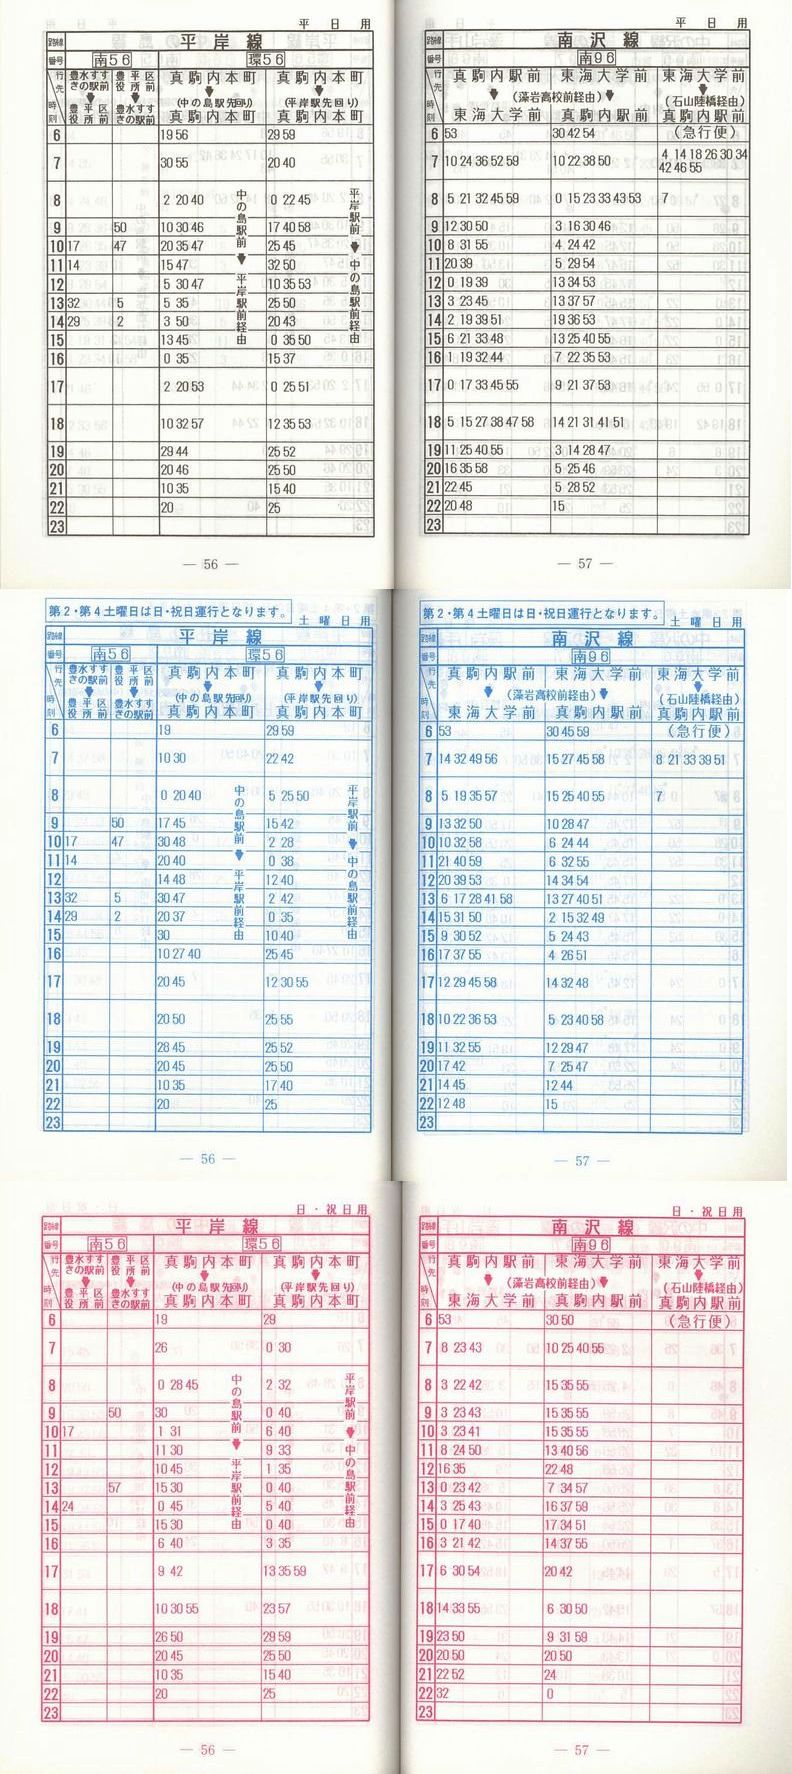 平日用
路線 平岸線
番号 南56 環56
行先 時刻 豊水すすきの駅前 豊平区役所前 豊平区役所前 豊水すすきの駅前 真駒内本町 (中の島駅先回り) 真駒内本町 真駒内本町 (平岸駅先回り) 真駒内本町
中の島駅前 平岸駅前経由
平岸駅前 中の島駅前経由
6 19 56 29 59
7 30 55 20 40
8 2 20 40 0 22 45
9 50 10 30 46 17 40 58
10 17 47 20 35 47 25 45
11 14 15 47 32 50
12 5 30 47 10 35 53
13 32 5 5 35 25 50
14 29 2 3 50 20 43
15 13 45 0 35 50
16 0 35 15 37
17 2 20 53 0 25 51
18 10 32 57 12 35 53
19 29 44 25 52
20 20 46 25 50
21 10 35 15 40
22 20 25
23
— 56 —
平日用
路線 南沢線
番号 南96
行先 時刻 真駒内駅前 東海大学前 東海大学前 真駒内駅前 (藻岩高校前経由) 東海大学前 (石山陸橋経由) 真駒内駅前
6 53 30 42 54 (急行便)
7 10 24 36 52 59 10 22 38 50 4 14 18 26 30 34
42 46 55
8 5 21 32 45 59 0 15 23 33 43 53 7
9 12 30 50 3 16 30 46
10 8 31 55 4 24 42
11 20 39 5 29 54
12 0 19 39 13 34 53
13 3 23 45 13 37 57
14 2 19 39 51 19 36 53
15 6 21 33 48 13 25 40 55
16 1 19 32 44 7 22 35 53
17 0 17 33 45 55 9 21 37 53
18 5 15 27 38 47 58 14 21 31 41 51
19 11 25 40 55 3 14 28 47
20 16 35 58 5 25 46
21 22 45 5 28 52
22 20 48 15
23
— 57 —
第2・第4土曜日は日・祝日運行となります。
土曜日用
路線 平岸線
番号 南56 環56
行先 時刻 豊水すすきの駅前 豊平区役所前 豊平区役所前 豊水すすきの駅前 真駒内本町 (中の島駅先回り) 真駒内本町 真駒内本町 (平岸駅先回り) 真駒内本町
中の島駅前 平岸駅前経由
平岸駅前 中の島駅前経由
6 19 29 59
7 10 30 22 42
8 0 20 40 5 25 50
9 50 17 45 15 42
10 17 47 30 48 2 28
11 14 20 40 0 38
12 14 48 12 40
13 32 5 30 47 2 42
14 29 2 20 37 0 35
15 30 10 40
16 10 27 40 25 45
17 20 45 12 30 55
18 20 50 25 55
19 28 45 25 52
20 20 45 25 50
21 10 35 17 40
22 20 25
23
— 56 —
第2・第4土曜日は日・祝日運行となります。
土曜日用
路線 南沢線
番号 南96
行先 時刻 真駒内駅前 東海大学前 東海大学前 真駒内駅前 (藻岩高校前経由) 東海大学前 (石山陸橋経由) 真駒内駅前
6 53 30 45 59 (急行便)
7 14 32 49 56 15 27 45 58 8 21 33 39 51
8 5 19 35 57 15 25 40 55 7
9 13 32 50 10 28 47
10 10 32 58 6 24 44
11 21 40 59 6 32 55
12 20 39 53 14 34 54
13 6 17 28 41 58 13 27 40 51
14 15 31 50 2 15 32 49
15 9 30 52 5 24 43
16 17 37 55 4 26 51
17 12 29 45 58 14 32 48
18 10 22 36 53 5 23 40 58
19 11 32 55 12 29 47
20 17 42 7 25 47
21 14 45 12 44
22 12 48 15
23
— 57 —
日・祝日用
路線 平岸線
番号 南56 環56
行先 時刻 豊水すすきの駅前 豊平区役所前 豊平区役所前 豊水すすきの駅前 真駒内本町 (中の島駅先回り) 真駒内本町 真駒内本町 (平岸駅先回り) 真駒内本町
中の島駅前 平岸駅前経由
平岸駅前 中の島駅前経由
6 19 29
7 26 0 30
8 0 28 45 2 32
9 50 30 0 40
10 17 1 31 6 40
11 11 30 9 33
12 10 45 1 35
13 57 15 30 0 40
14 24 0 45 5 40
15 15 30 0 40
16 6 40 3 35
17 9 42 13 35 59
18 10 30 55 23 57
19 26 50 29 59
20 20 45 25 50
21 10 35 15 40
22 20 25
23
— 56 —
日・祝日用
路線 南沢線
番号 南96
行先 時刻 真駒内駅前 東海大学前 東海大学前 真駒内駅前 (藻岩高校前経由) 東海大学前 (石山陸橋経由) 真駒内駅前
6 53 30 50 (急行便)
7 8 23 43 10 25 40 55
8 3 22 42 15 35 55
9 3 23 43 15 35 55
10 3 23 41 15 35 55
11 8 24 50 13 40 56
12 16 35 22 48
13 0 23 42 7 34 57
14 3 25 43 16 37 59
15 0 17 40 17 34 51
16 3 21 42 14 37 55
17 6 30 54 20 42
18 14 33 55 6 30 50
19 23 50 9 31 59
20 20 50 20 50
21 22 52 24
22 32 0
23
— 57 —